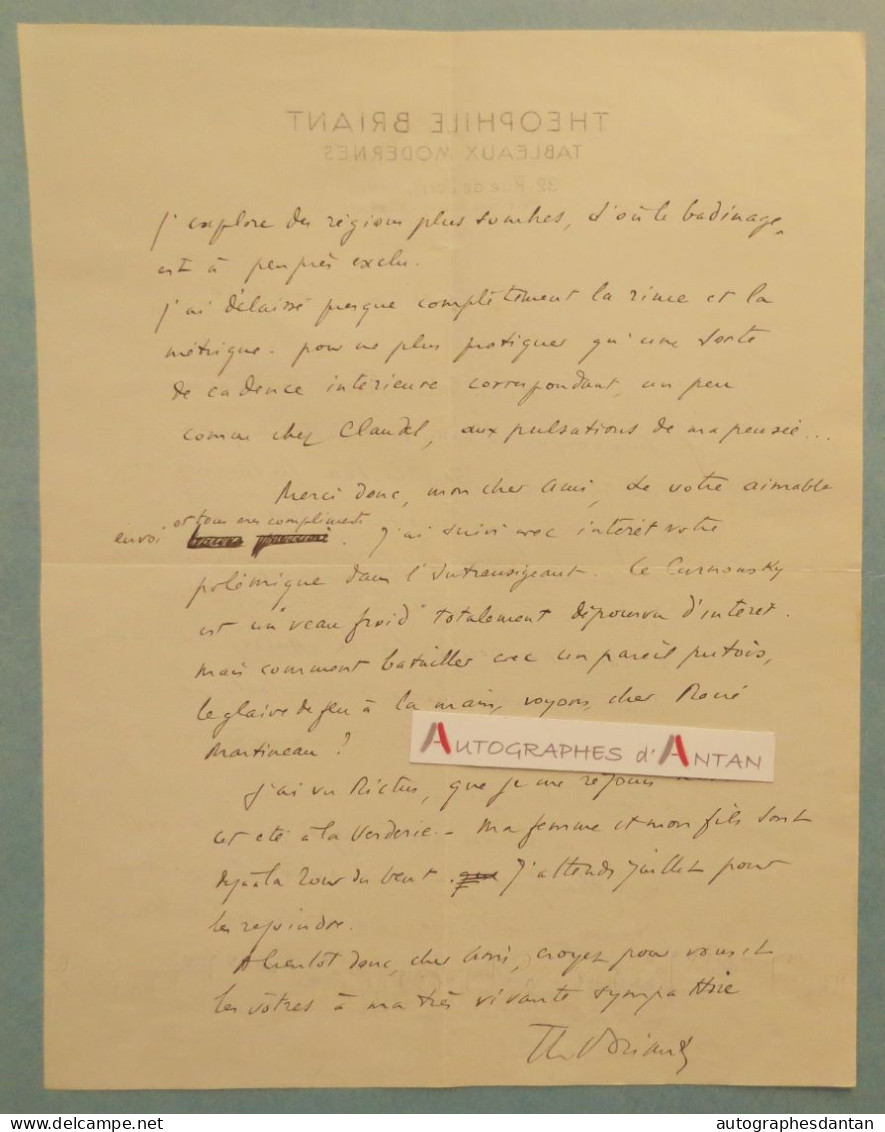 THEOPHILE BRIANT
TABLEAUX MODERNES
32, Rue de Berri
J'explore des régions plus sombres, d'où le badinage
est à peu près exclu.
J'ai délaissé presque complètement la rime et la
métrique. pour ne plus pratiquer qu'une sorte
de cadence intérieure correspondant, un peu
comme chez Claudel, aux pulsations de ma pensée...
Merci donc, mon cher Ami, de votre aimable
et tous mes compliments
envoi . J'ai suivi avec intérêt votre
polémique dans l'Intransigeant. Le Curnonsky
est un "veau froid" totalement dépourvu d'intérêt.
Mais comment batailler avec un pareil putois,
le glaive de feu à la main, voyons, cher René
Martineau ?
J'ai vu Rictus, que je me réjouis
cet été à la Verderie. - Ma femme et mon fils sont
déjà à la Tour du Vent. J'attends Juillet pour
les rejoindre.
A bientôt donc, cher Ami, croyez pour vous et
les vôtres à ma très vivante sympathie
Th Briant
AUTOGRAPHES d'ANTAN
delcampe.net
autographesdantan